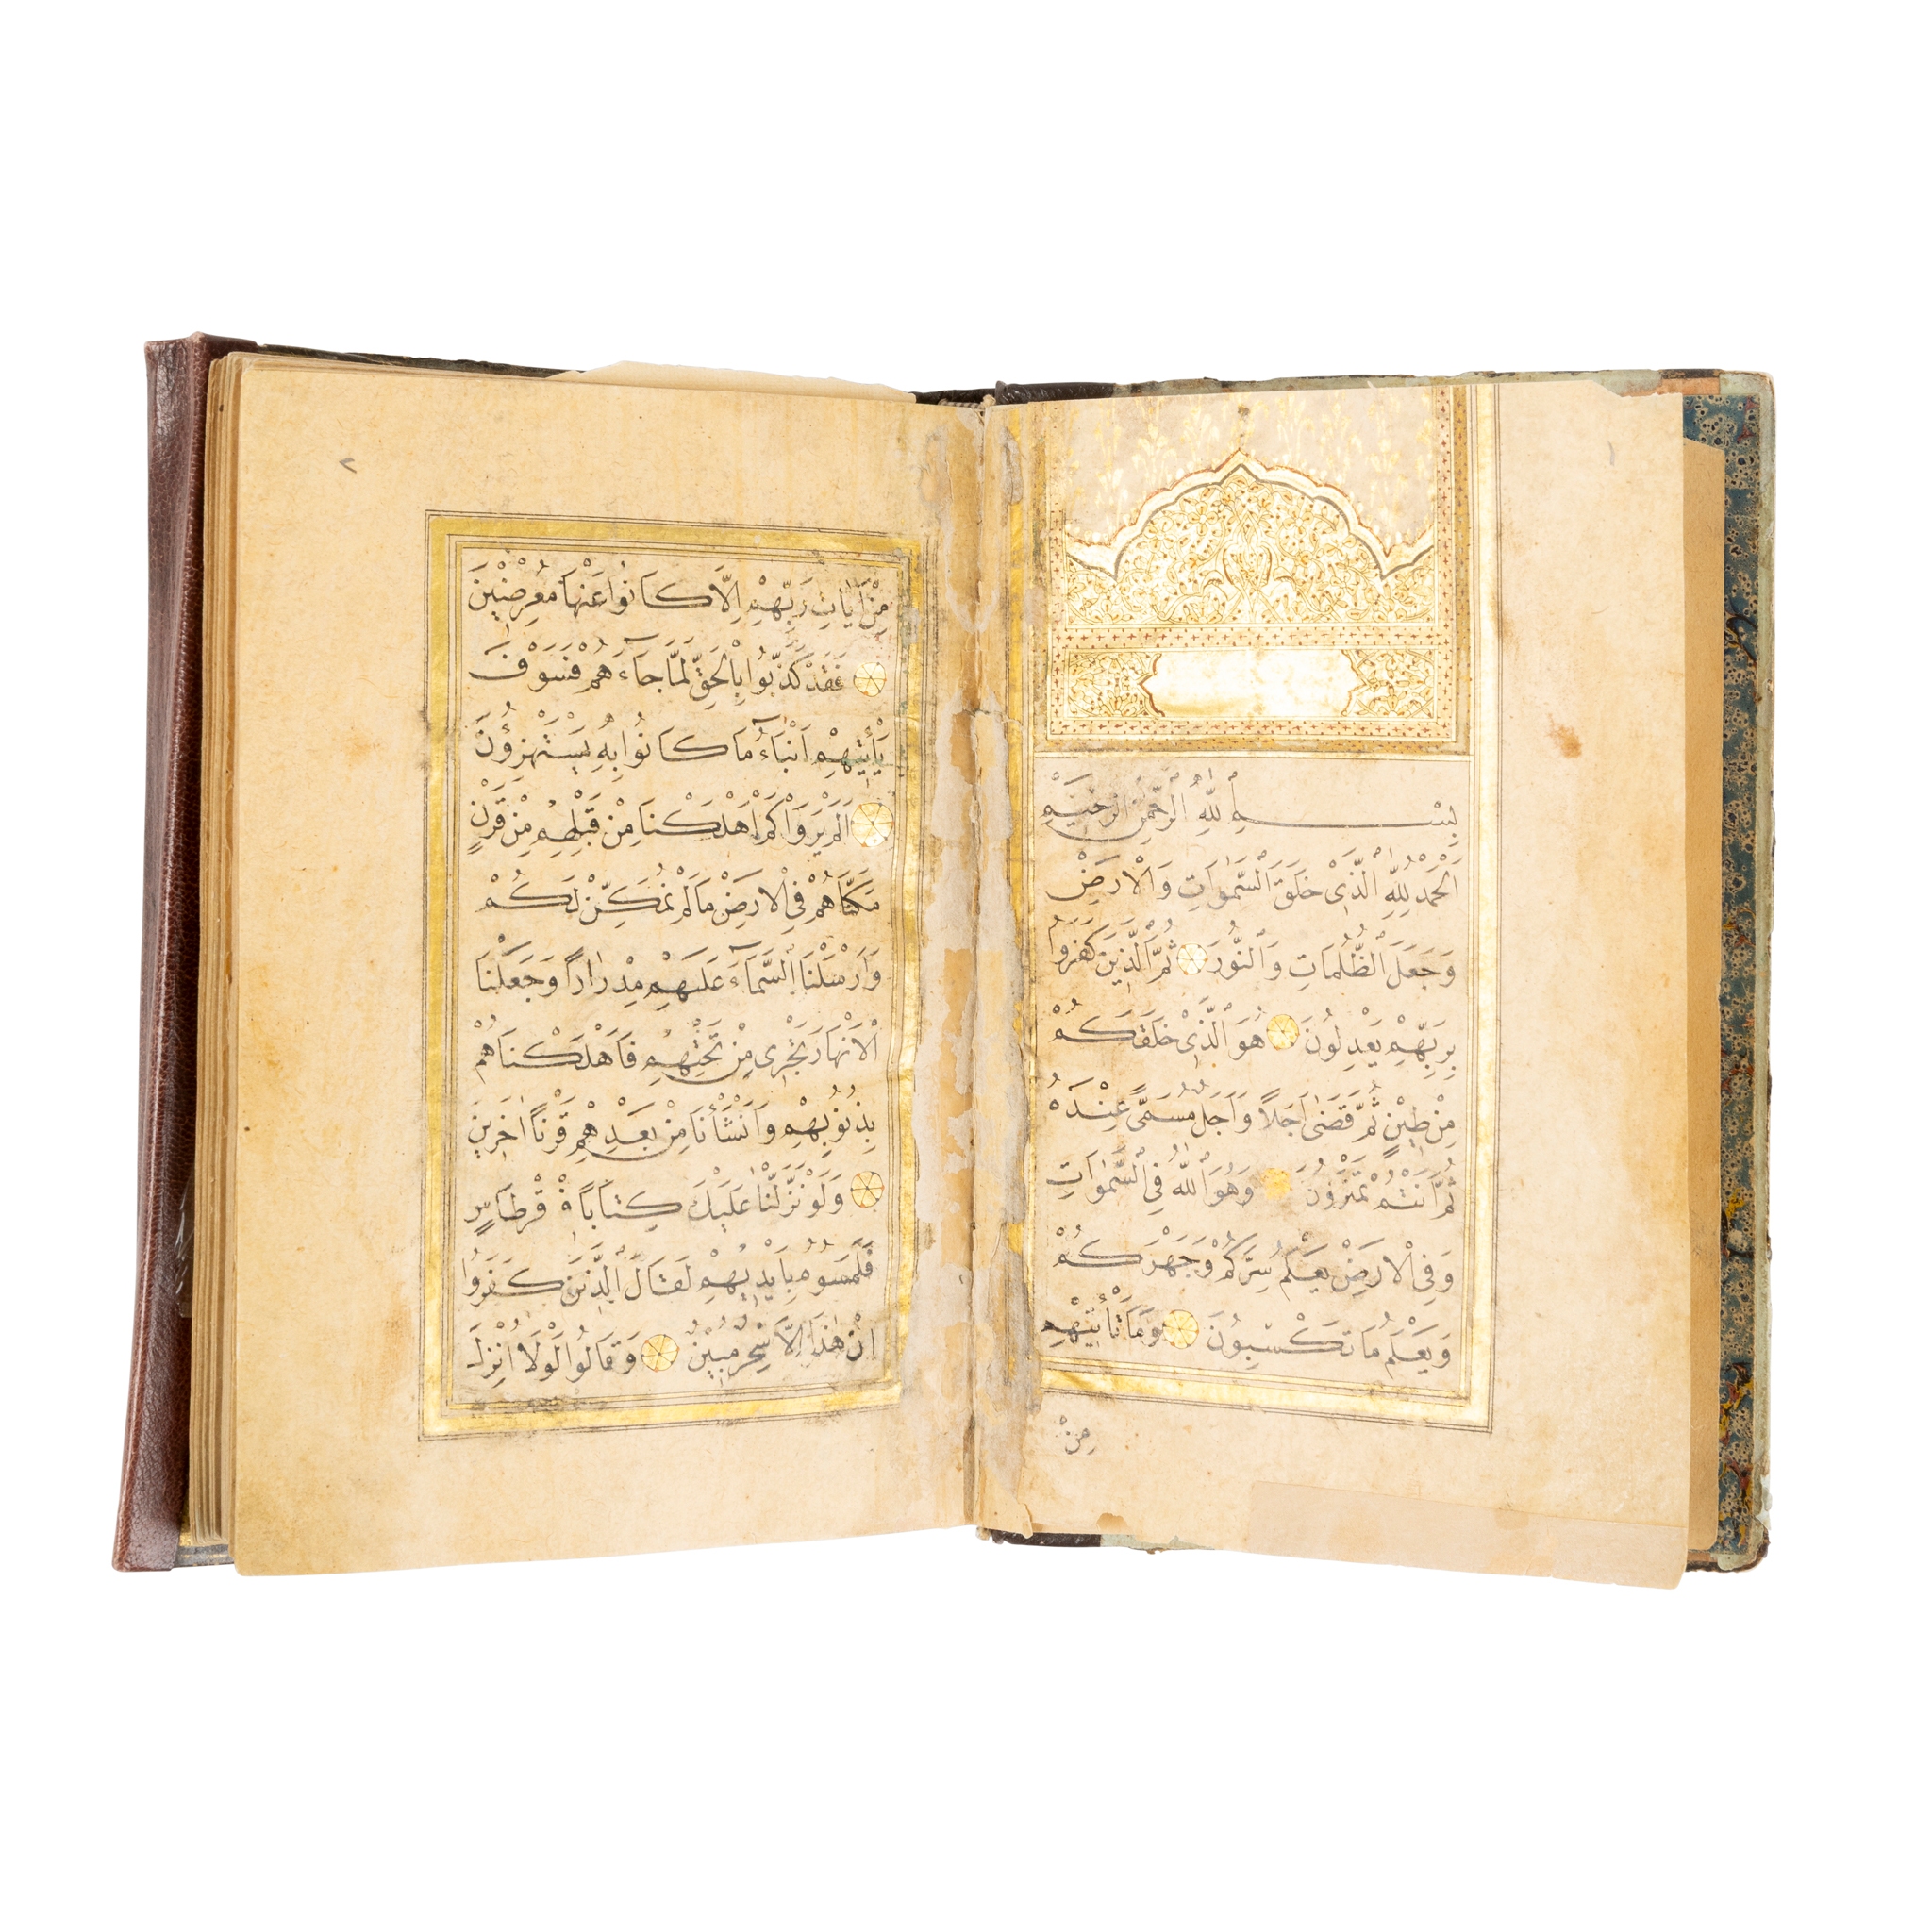 بِسْمِ اللّٰهِ الرَّحْمٰنِ الرَّحِيْمِ
اَلْحَمْدُ لِلّٰهِ الَّذِىْ خَلَقَ السَّمٰوَاتِ وَالْاَرْضَ
وَجَعَلَ الظُّلُمَاتِ وَالنُّوْرَ ثُمَّ الَّذِيْنَ كَفَرُوا
بِرَبِّهِمْ يَعْدِلُونَ هُوَ الَّذِىْ خَلَقَكُمْ
مِنْ طِيْنٍ ثُمَّ قَضٰى اَجَلًا وَاَجَلٌ مُسَمًّى عِنْدَهُ
ثُمَّ اَنْتُمْ تَمْتَرُوْنَ وَهُوَ اللّٰهُ فِى السَّمٰوَاتِ
وَفِى الْاَرْضِ يَعْلَمُ سِرَّكُمْ وَجَهْرَكُمْ
وَيَعْلَمُ مَا تَكْسِبُوْنَ وَمَا تَأْتِيْهِمْ
مِنْ
٢
مِنْ اٰيَاتِ رَبِّهِمْ اِلَّا كَانُوْا عَنْهَا مُعْرِضِيْنَ
فَقَدْ كَذَّبُوْا بِالْحَقِّ لَمَّا جَآءَهُمْ فَسَوْفَ
يَأْتِيْهِمْ اَنْبَآءُ مَا كَانُوْا بِهِ يَسْتَهْزِؤُنَ
اَلَمْ يَرَوْا كَمْ اَهْلَكْنَا مِنْ قَبْلِهِمْ مِنْ قَرْنٍ
مَكَّنَّاهُمْ فِى الْاَرْضِ مَا لَمْ نُمَكِّنْ لَكُمْ
وَاَرْسَلْنَا السَّمَآءَ عَلَيْهِمْ مِدْرَارًا وَجَعَلْنَا
الْاَنْهَارَ تَجْرِى مِنْ تَحْتِهِمْ فَاَهْلَكْنَاهُمْ
بِذُنُوْبِهِمْ وَاَنْشَأْنَا مِنْ بَعْدِهِمْ قَرْنًا اٰخَرِيْنَ
وَلَوْ نَزَّلْنَا عَلَيْكَ كِتَابًا فِىْ قِرْطَاسٍ
فَلَمَسُوْهُ بِاَيْدِيْهِمْ لَقَالَ الَّذِيْنَ كَفَرُوْا
اِنْ هٰذَا اِلَّا سِحْرٌ مُبِيْنٌ وَقَالُوْا لَوْلَا اُنْزِلَ